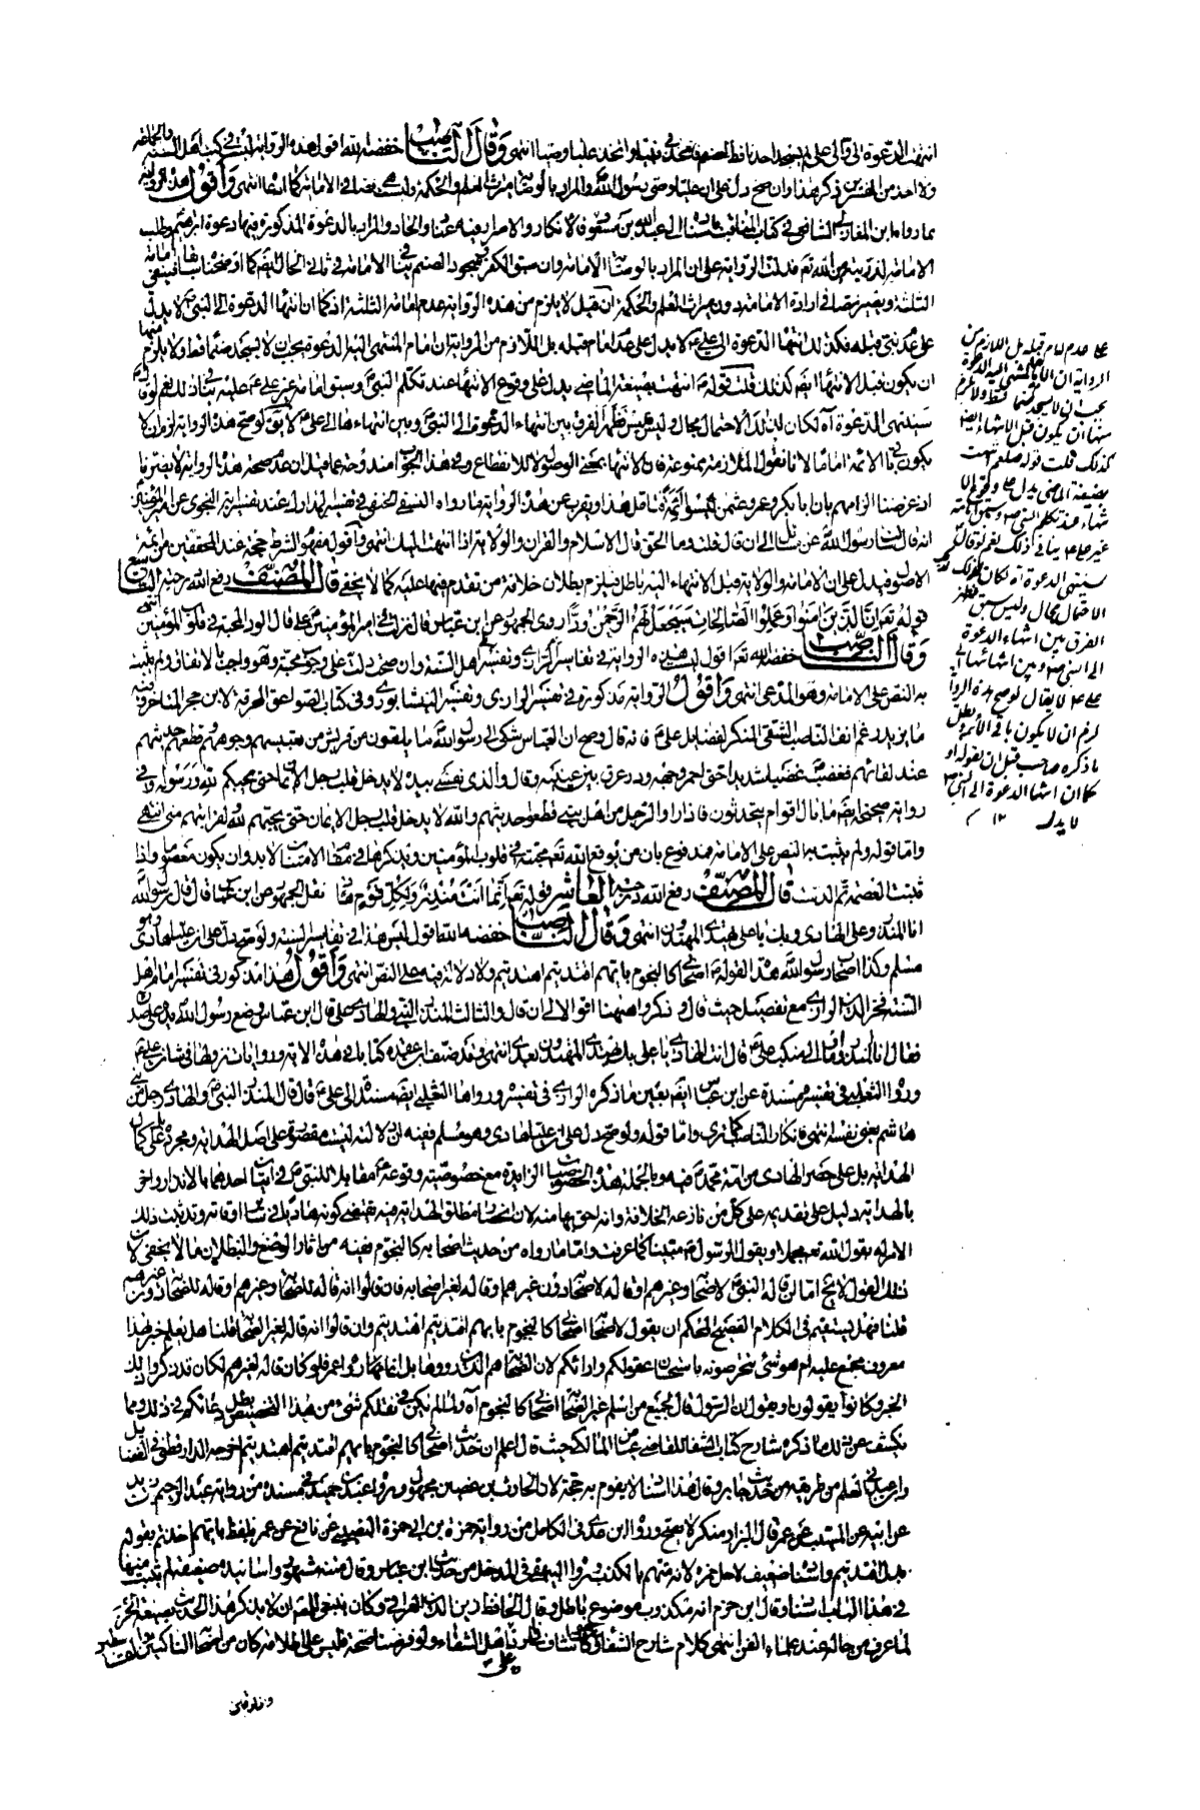 انتهت الدعوة الي والى علي لم يسجد احدنا قط لصنم فاتخذني نبيا واتخذ عليا وصيا انتهى وقال الناصب خفضه الله اقول هذه الرواية ليست في كتب اهل السنة والجماعة
ولا احد من المفسرين ذكر هذا وان صح دل على ان عليا وصي رسول الله والمراد بالوصاية ميراث العلم والحكمة وليست هي نصا في الامامة كما ادعاه انتهى واقول هذه الرواية
مما رواه ابن المغازلي الشافعي في كتاب المناقب باسناده الى عبد الله بن مسعود فالانكار والاصرار فيه عناد والحاد والمراد بالدعوة المذكورة فيها دعوة ابراهيم وطلب
الامامة لذريته من الله تعالى فدلت الرواية على ان المراد بالوصاية الامامة وان سبق الكفر وسجود الصنم ينافي الامامة في ثاني الحال ايضا كما اوضحناه سابقا فينفي امامة
الثلثة ويصير نصا في ارادة الامامة دون ميراث العلم والحكمة ان قيل لا يلزم من هذه الرواية عدم امامة الثلثة اذ كما ان انتهاء الدعوة الى النبي لا يدل
على عدم نبي قبله فكذلك انتهاء الدعوة الى علي لا يدل على عدم امام قبله بل اللازم من الرواية ان امام المنتهى اليه الدعوة يجب ان لا يسجد صنما قط ولا يلزم منها
ان يكون قبل الانتهاء ايضا كذلك قلت قوله انتهت بصيغة الماضي يدل على وقوع الانتهاء عند تكلم النبي وسبق امامة غير علي عليه ينافي ذلك نعم لو قال
سينتهي الدعوة آه لكان لذلك الاحتمال مجال وليس فليس فظهر الفرق بين انتهاء الدعوة الى النبي وبين انتهاءها الى علي لا يقال لو صح هذه الرواية لزم ان لا
يكون باقي الائمة اماما لانا نقول الملازمة ممنوعة فان الانتهاء بمعنى الوصول لا الانقطاع وفي هذا الجواب مندوحة عما قيل ان عدم صحة هذه الرواية لا يضرنا
اذ غرضنا الزامهم بان ابا بكر وعمر وعثمن ليسوا ائمة فتامل هذا ويقرب من هذه الرواية ما رواه النسفي الحنفي في تفسير المدارك عند تفسير آية النجوى عن امير المؤمنين
انه قال سالت رسول الله عن مسائل الى ان قال قلت وما الحق قال الاسلام والقرآن والولاية اذا انتهت اليك انتهى واقول مفهوم الشرط حجة عند المحققين من ائمة
الاصول فيدل على ان الامامة والولاية قبل الانتهاء اليه باطل فيلزم بطلان خلافة من تقدم فيها عليه كما لا يخفى قال المصنف رفع الله درجته التاسع
قوله تعالى ان الذين آمنوا وعملوا الصالحات سيجعل لهم الرحمن ودا روى الجمهور عن ابن عباس قال نزلت في امير المؤمنين علي قال الود المحبة في قلوب المؤمنين انتهى
وقال الناصب خفضه الله تعالى اقول ليست هذه الرواية في تفاسير اهل السنة وان صحت دلت على وجوب محبته وهو واجب بالاتفاق ولم يثبت
به النص على الامامة وهو المدعى انتهى واقول الرواية مذكورة في تفسير الرازي وتفسير النيشابوري وفي كتاب الصواعق المحرقة لابن حجر المتاخر
ما يزيد رغم انف الناصب الشقي المنكر لفضايل علي فانه قال وصح ان العباس شكى الى رسول الله ما يلقون من قريش من تعبيسهم وجوههم وقطعهم حديثهم
عند لقائهم فغضب غضبا شديدا حتى احمر وجهه ودر عرق بين عينيه وقال والذي نفسي بيده لا يدخل قلب رجل الايمان حتى يحبكم لله ورسوله وفي
رواية صحيحة ايضا ما بال اقوام يتحدثون فاذا راوا الرجل من اهل بيتي قطعوا حديثهم والله لا يدخل قلب رجل الايمان حتى يحبهم لله ولقرابتهم مني انتهى
واما قوله ولم يثبت به النص على الامامة فمدفوع بان من يوقع الله تعالى محبته في قلوب المؤمنين ويذكرها في مقام الامتنان لابد وان يكون معصوما واذا
ثبت العصمة تم الدست قال المصنف رفع الله درجته العاشر قوله تعالى انما انت منذر ولكل قوم هاد نقل الجمهور عن ابن عباس قال قال رسول الله
انا المنذر وعلي الهادي وبك يا علي يهتدي المهتدون انتهى وقال الناصب خفضه الله اقول ليس هذا في تفاسير السنة ولو صح دل على ان عليا هادي وهو
مسلم وكذا اصحاب رسول الله هداة لقوله اصحابي كالنجوم بايهم اقتديتم اهتديتم ولا دلالة فيه على النص انتهى واقول هذا مذكور في تفسير امام اهل
السنة فخر الدين الرازي مع تفصيل حيث قال وذكروا هيهنا اقوالا الى ان قال والثالث المنذر النبي والهادي علي قال ابن عباس وضع رسول الله يده على صدره
فقال انا المنذر واومأ الى منكب علي قال انت الهادي يا علي بك يهتدي المهتدون بعدي انتهى وقد صنف ابن عقدة كتابا في هذه الآية وروايات نزولها في شان علي
وروى الثعلبي في تفسيره مسندة عن ابن عباس ايضا بعين ما ذكره الرازي في تفسيره ورواها الثعلبي ايضا مسندة الى علي قال قال المنذر النبي والهادي رجل من بني
هاشم يعني نفسه انتهى فانكار الناصب كما ترى واما قوله ولو صح دل على ان عليا هادي وهو مسلم ففيه ان الدلالة ليست مقصورة على اصل الهداية ومجرد كمال
الهداية بل على حصر الهادي من امة محمد فيه وبالجملة هذه الخصوصيات الزايدة مع خصوصية وقوعه مقابلا للنبي في اثبات احدهما بالانذار والآخر
بالهداية دليل على تقديمه على كل من نازعه الخلافة وانه احق بها منه
الامر له بقول الله تعالى مجملا وبقول الرسول مبينا كما عرفت واما ما رواه من حديث اصحابي كالنجوم ففيه من آثار الوضع والبطلان ما لا يخفى لان
ذلك القول لا يخ اما ان قاله النبي لاصحابه وغيرهم او قاله لاصحابه دون غيرهم او قاله لغير اصحابه فان قالوا انه قاله للصحابة وغيرهم او قاله للصحابة دون غيرهم
قلنا فهل يستقيم في الكلام الفصيح المحكم ان يقول لاصحابه اصحابي كالنجوم بايهم اقتديتم اهتديتم وان قالوا انه قاله لغير الصحابة قلنا هل بعلم خبر هذا
معروف مجمع عليه ام هو شيء تخرصونه باستحسان عقولكم وارائكم لان الصحابة هم الذين رووها فلو كان قاله لغيرهم لكان قد ذكروا ذلك
الخبر وكانوا يقولون او يقول ان الرسول قال لجميع من اسلم غير الصحابة اصحابي كالنجوم آه ولما لم يكن في نقلكم شيء من هذا التخصيص بطل دعائكم في ذلك ومما
يكشف عن ذلك ما ذكره شارح كتاب الشفا للقاضي عياض المالكي حيث قال اعلم ان حديث اصحابي كالنجوم بايهم اقتديتم اهتديتم اخرجه الدارقطني في الفضائل
وابن عبد البر في العلم من طريقه من حديث جابر وقال هذا اسناد لا يقوم به حجة لان الحارث بن غصين مجهول ورواه عبد بن حميد في مسنده من رواية عبد الرحيم بن زيد
عن ابيه عن المسيب عن عمر قال البزار منكر لا يصح ورواه ابن عدي في الكامل من رواية حمزة بن ابي حمزة النصيبي عن نافع عن عمر بلفظ بايهم اخذتم بقوله
بدل اقتديتم واسناده ضعيف لاجل حمزة لانه متهم بالكذب ورواه البيهقي في المدخل من حديث ابن عباس وقال متنه مشهور واسانيده ضعيفة لم يثبت منها
في هذا الباب اسناد وقال ابن حزم انه مكذوب موضوع باطل وقال الحافظ زين الدين العراقي وكان ينبغي للمصنف ان لا يذكر هذا الحديث بصيغة الجزم
لما عرف من حاله عند علماء الفن انتهى كلام شارح الشفاء ولو فرضنا صحته فليس على اطلاقه كان من اصحابه الناكثين والقاسطين
والمارقين
على عدم امام قبله بل اللازم من
الرواية ان الامام المنتهى اليه الدعوة
يجب ان لا يسجد صنما قط ولا يلزم
منها ان يكون قبل الانتهاء ايضا
كذلك قلت قوله صلعم انتهت
بصيغة الماضي يدل على وقوع الا
نتهاء عند تكلم النبي ص وسبق امامة
غير علي ع ينافي ذلك نعم لو قال
سينتهي الدعوة آه لكان لذلك
الاحتمال مجال وليس فليس فظهر
الفرق بين انتهاء الدعوة
الى النبي ص وبين انتهائها الى
علي ع لا يقال لو صح هذه الرواية
لزم ان لا يكون باقي الائمة
ما ذكره صاحب قيل ان بقوله او
كما ان انتهاء الدعوة الى النبي ص
لا يدل ١٢